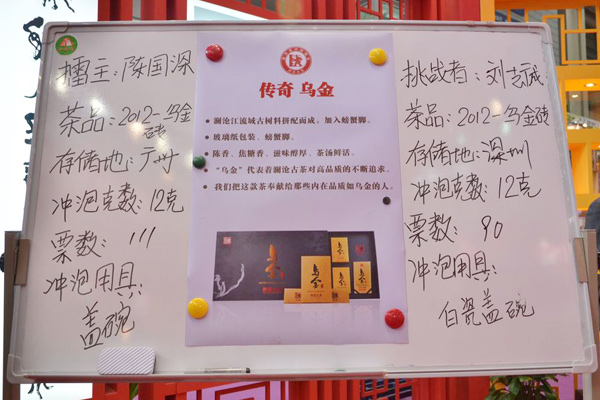 擂主：陈国深
茶品：2012-乌金
砖
存储地：广州
冲泡克数：12克
票数：111
冲泡用具：
盖碗
传奇 乌金
● 澜沧江流域古树料拼配而成，加入螃蟹脚。
● 玻璃纸包装、螃蟹脚。
● 陈香、焦糖香、滋味醇厚、茶汤鲜活。
● “乌金”代表着澜沧古茶对高品质的不断追求。
● 我们把这款茶奉献给那些内在品质如乌金的人。
乌金
挑战者：刘吉诚
茶品：2012-乌金砖
存储地：深圳
冲泡克数：12克
票数：90
冲泡用具：
白瓷盖碗